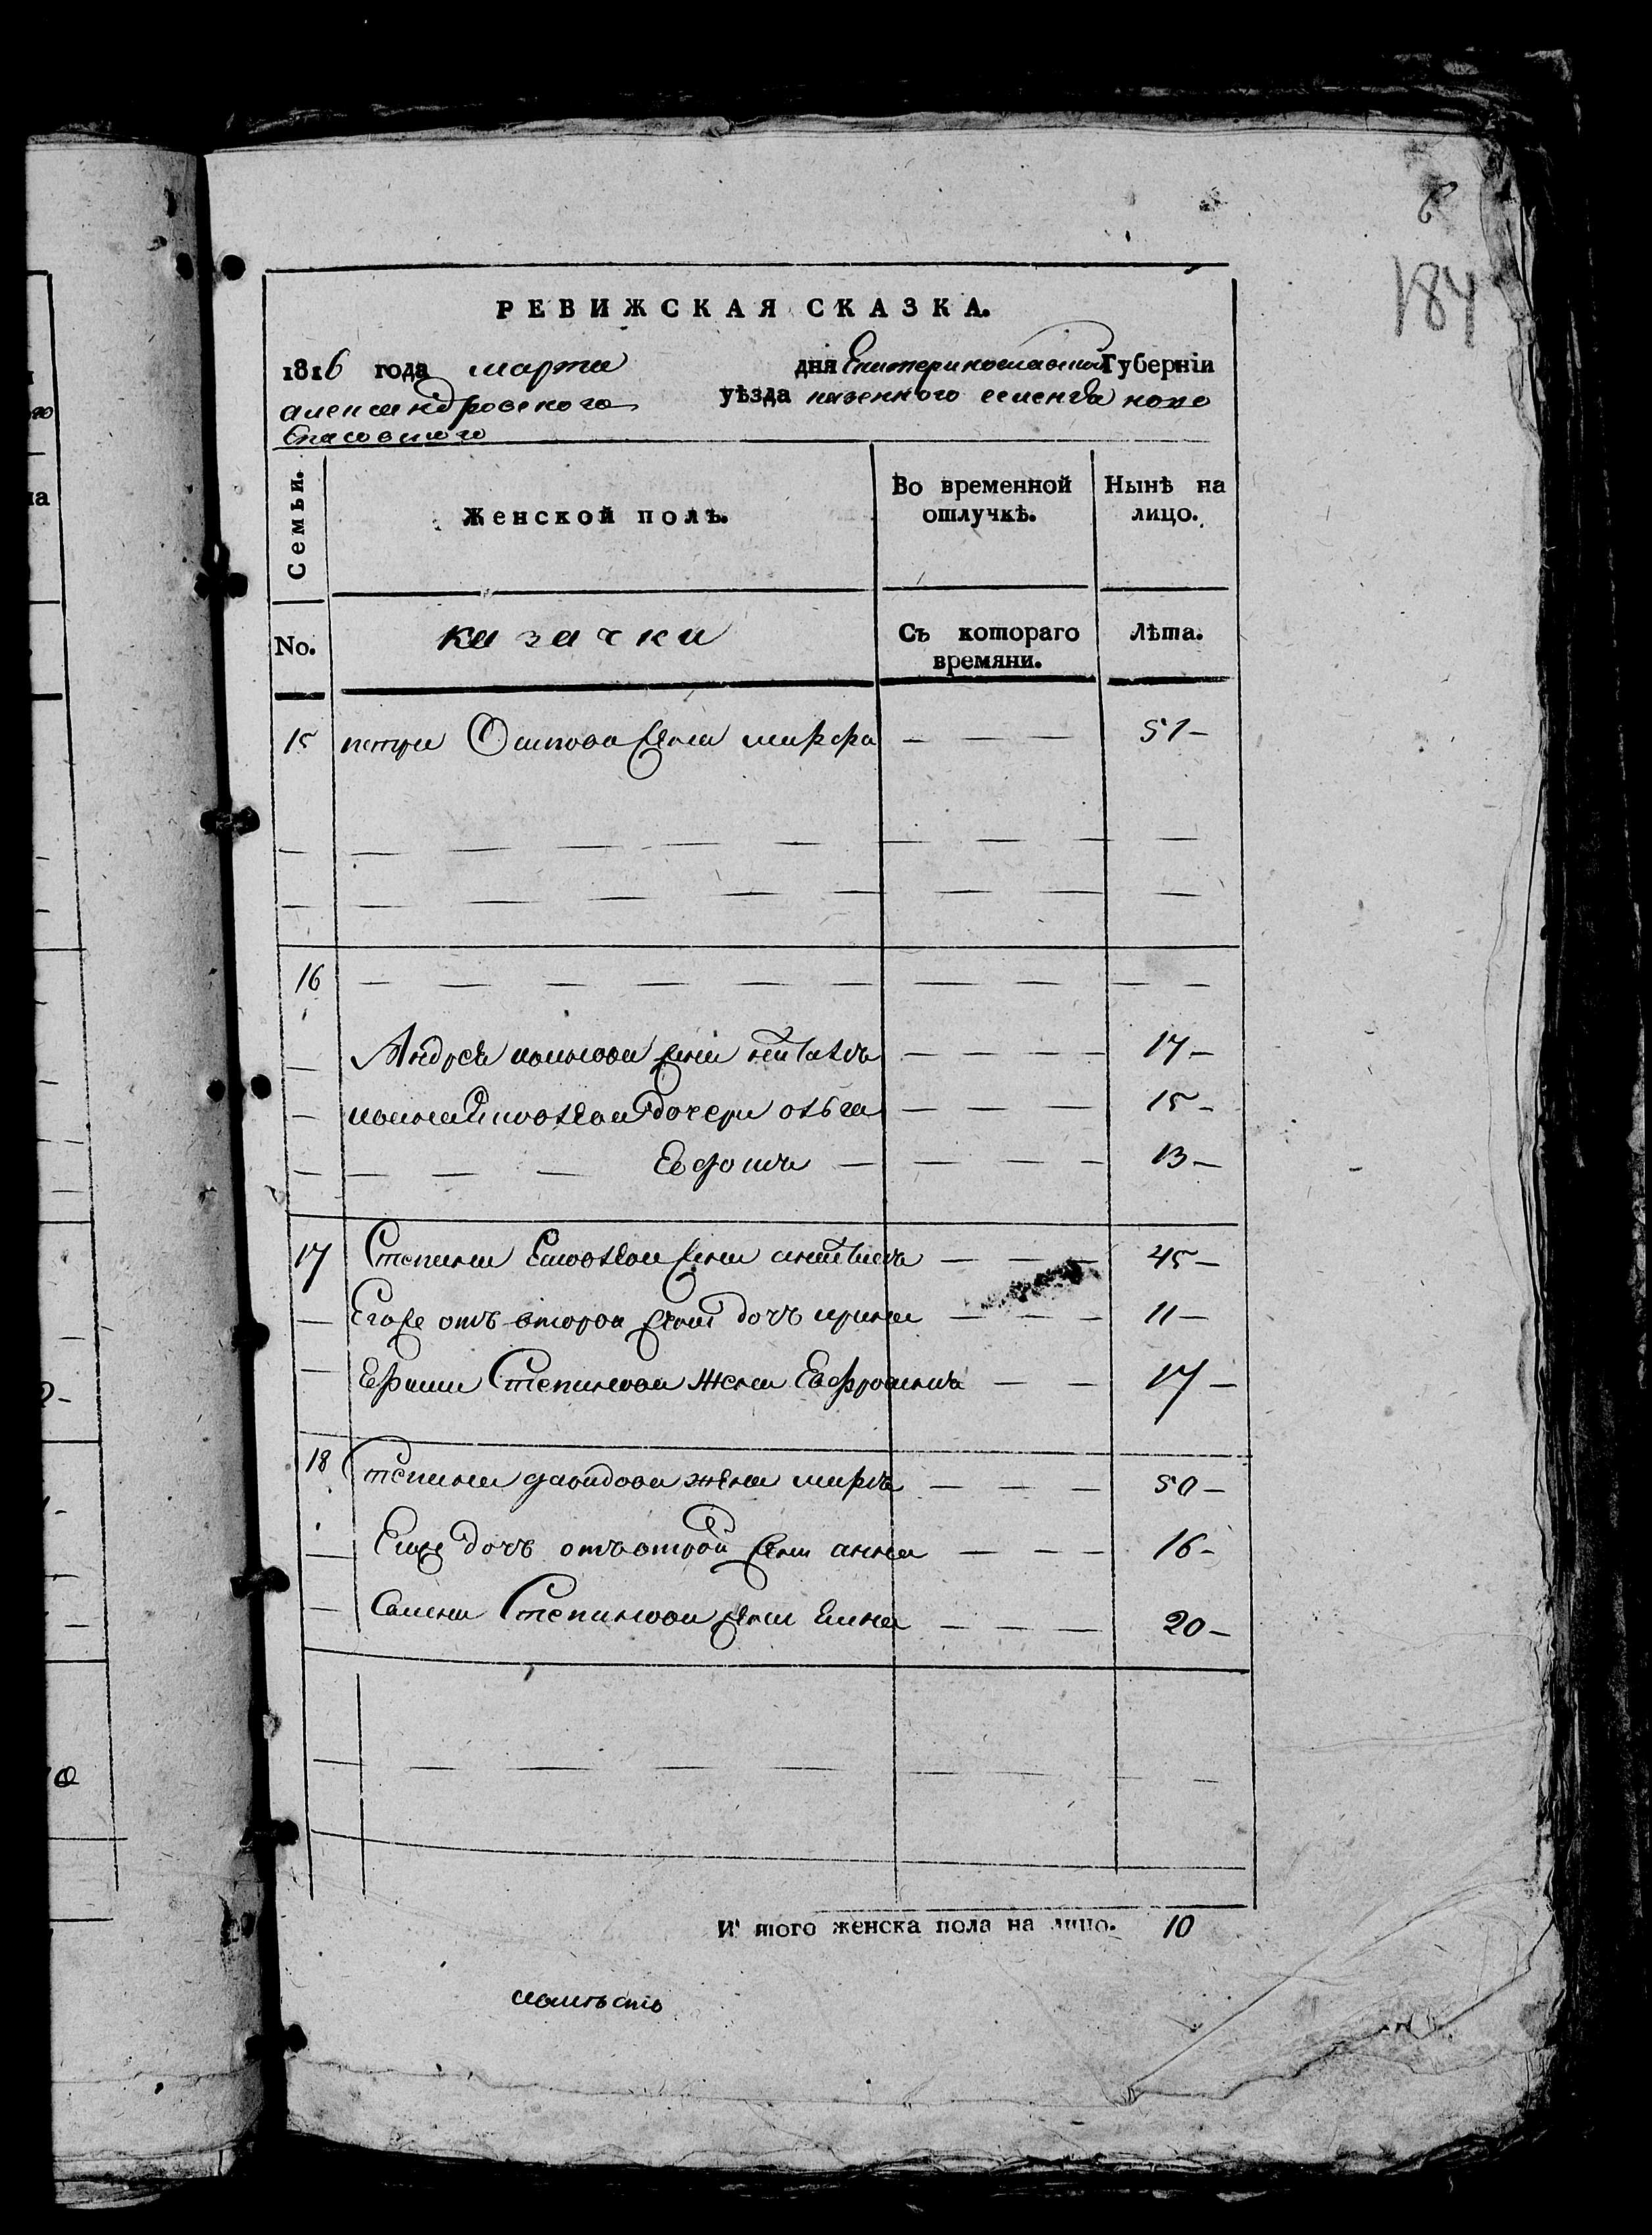 184
РЕВИЖСКАЯ СКАЗКА.
1816 года марта дня Екатеринославской Губерніи
александровского уѣзда казенного селенія ново
спасовского
Семьи.
Женской полъ.
Во временной отлучкѣ.
Нынѣ на лицо.
No.
казачки
Съ котораго времяни.
Лѣта.
15 петра Осипова жена марфа — — — 51 —
16 — — — — — — — — — — —
Андрея жена — — — — 17 —
дочери ольга — — — 15 —
— — — — — — — — 13 —
17 Степана жена — — — 45 —
Его же отъ второй жены дочь ирина — — — 11 —
Ефима Степанова жена Евфросинья — — 17 —
18 Степана давидова жена марья — — — 50 —
Его же дочь отъ второй жены анна — — — 16 —
Семена Степанова жена Елена — — — 20 —
И того женска пола на лицо. 10